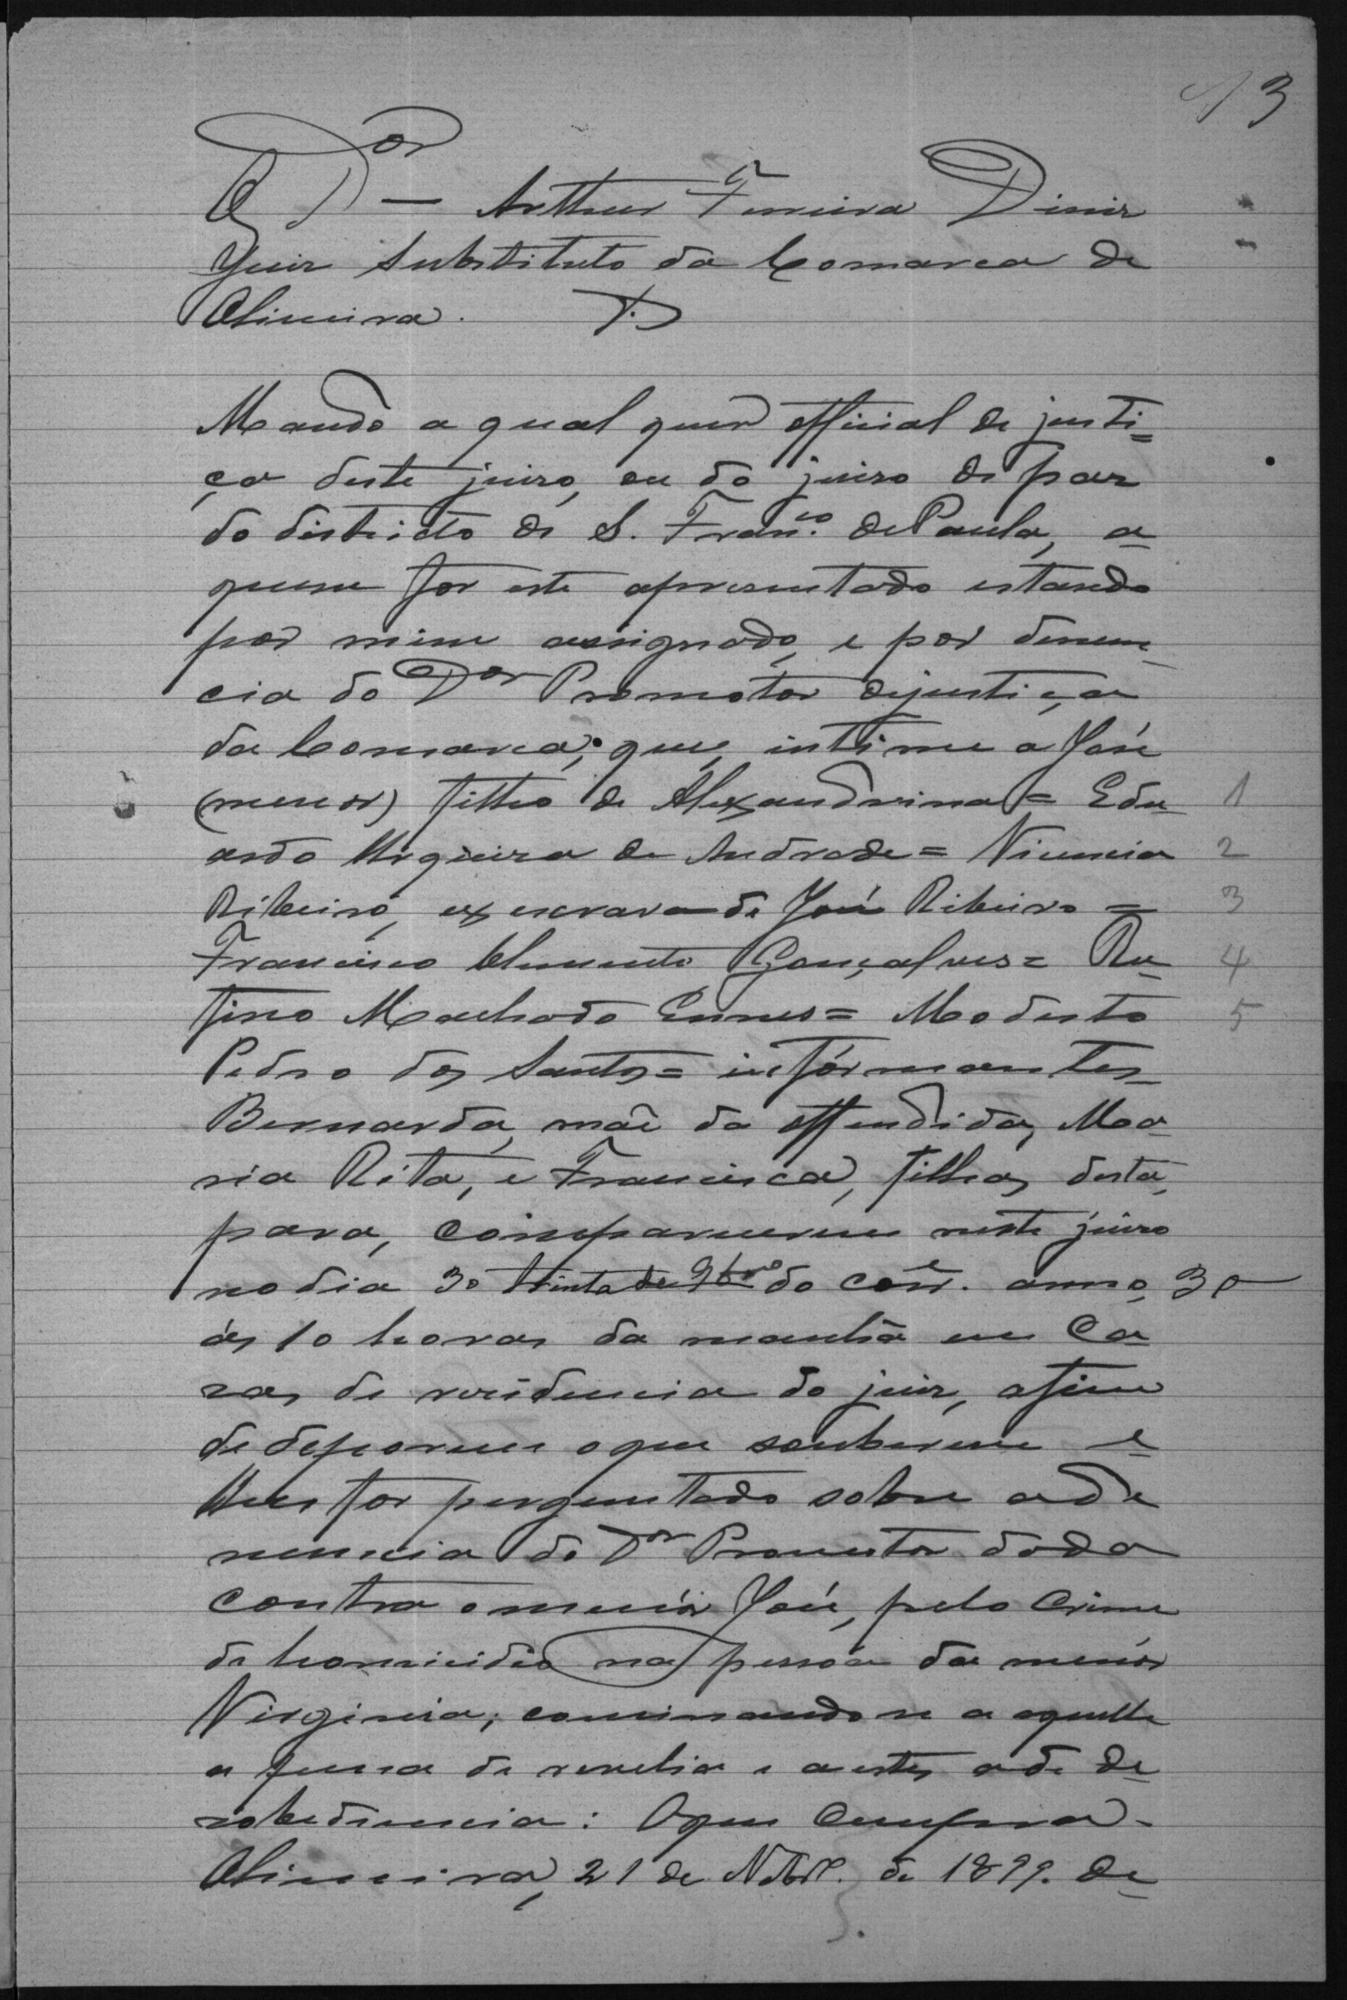 13
O Dor — Arthur Ferreira Diniz
Juiz Substituto da Comarca de
Oliveira.
Mando a qual quer official de justi=
ça deste juizo, ou do juizo de paz
do districto de S. Franco. de Paula, a
quem for este apresentado estando
por mim assignado, e por denun-
cia do Dor Promotor de justiça
da Comarca; que, intime a José
(menor) filho de Alexandrina = Edu- 1
ardo de Andrade = Vicencia 2
Ribeiro, ex escrava de José Ribeiro = 3
Francisco Clemente Gonçalves = Ru- 4
fino Machado Ennes = Modesto 5
Pedro dos Santos = informantes
Bernarda, mãe da offendida, Ma-
ria Rita, e Francisca, filhas desta,
para, comparecerem neste juizo
no dia 30 trinta de 9bro do corre. anno, 30
ás 10 horas da manhã em Ca-
zas de residencia do juiz, afim
de deporem o que souberem e
lhes for perguntado sobre a de
nuncia do Dr Promotor dada
contra o menór José, pelo crime
de homicidio na pessoa da menór
Virginia; cominando se a aquelle
a pena de revelia e a estes a de de
zobediencia: O que cumpra-
Oliveira, 21 de Nobre. de 1899. De